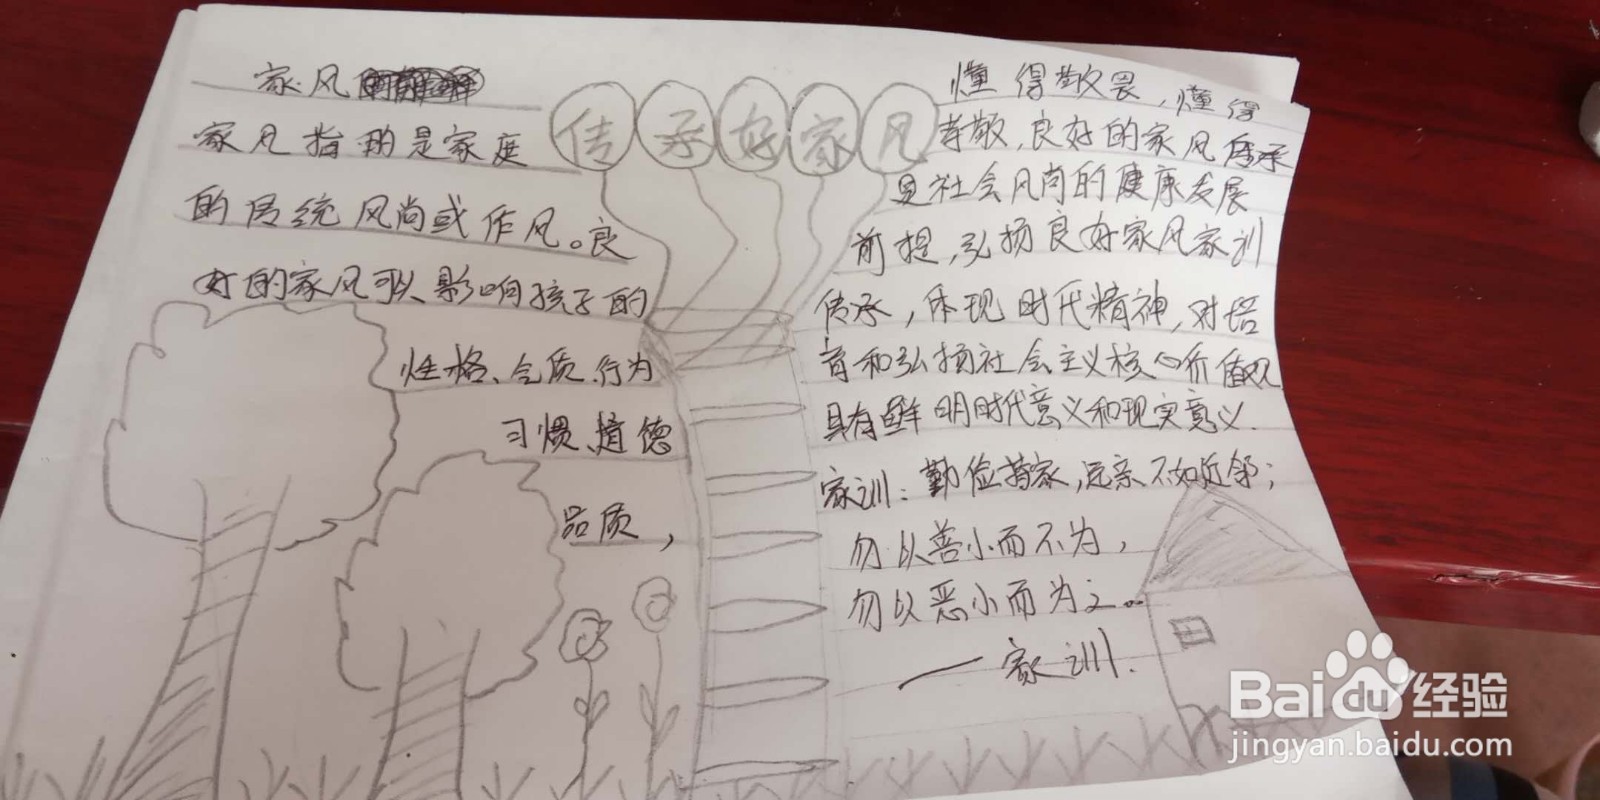 家风
家风指的是家庭
的传统风尚或作风。良
好的家风可以影响孩子的
性格、气质、行为
习惯、道德
品质，
传承好家风
懂得敬畏，懂得
尊敬，良好的家风传承
是社会风尚的健康发展
前提，弘扬良好家风家训
传承，体现时代精神，对培
育和弘扬社会主义核心价值观
具有鲜明时代意义和现实意义.
家训：勤俭持家，远亲不如近邻；
勿以善小而不为，
勿以恶小而为之。
——家训.
Baidu经验
jingyan.baidu.com